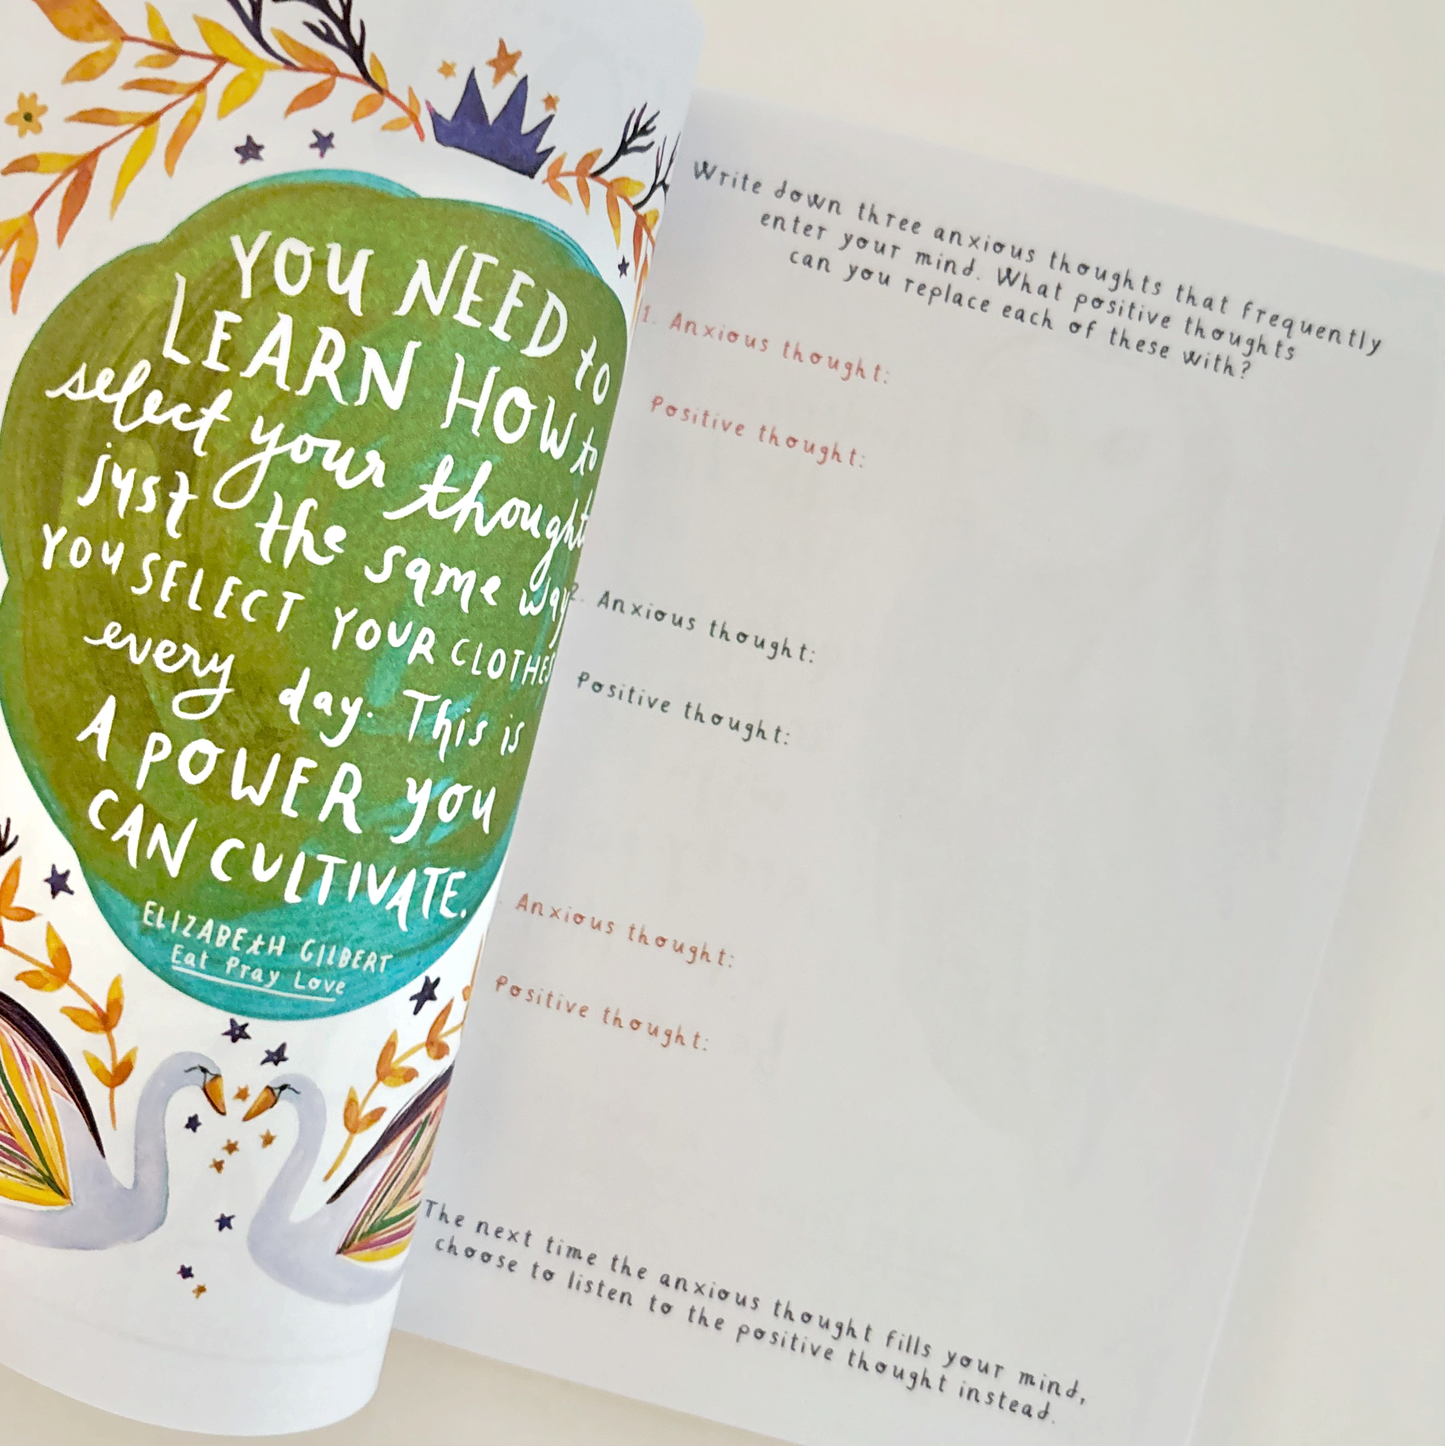 YOU NEED to
LEARN HOW to
select your thoughts
just the same way
YOU SELECT YOUR CLOTHES
every day. This is
A POWER you
CAN CULTIVATE.
ELIZABETH GILBERT
Eat Pray Love
Write down three anxious thoughts that frequently
enter your mind. What positive thoughts
can you replace each of these with?
1. Anxious thought:
Positive thought:
2. Anxious thought:
Positive thought:
Anxious thought:
Positive thought:
The next time the anxious thought fills your mind,
choose to listen to the positive thought instead.